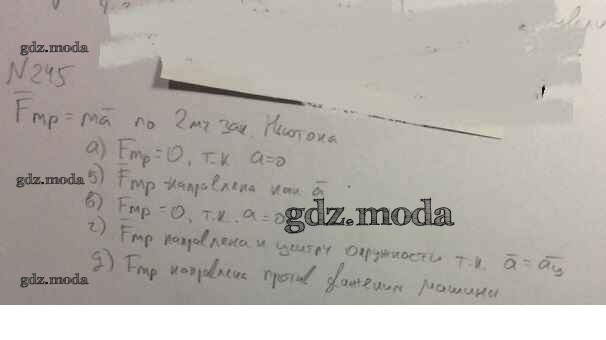 gdz.moda
N 245
F̅тр = ma̅ по 2му зак. Ньютона
а) Fтр = 0, т.к a=0
gdz.moda б) F̅тр направлена как a̅
в) Fтр = 0, т.к. a=0
gdz.moda
г) F̅тр направлена к центру окружности т.к. a̅ = a̅ц
д) Fтр направлена против движения машины
gdz.moda